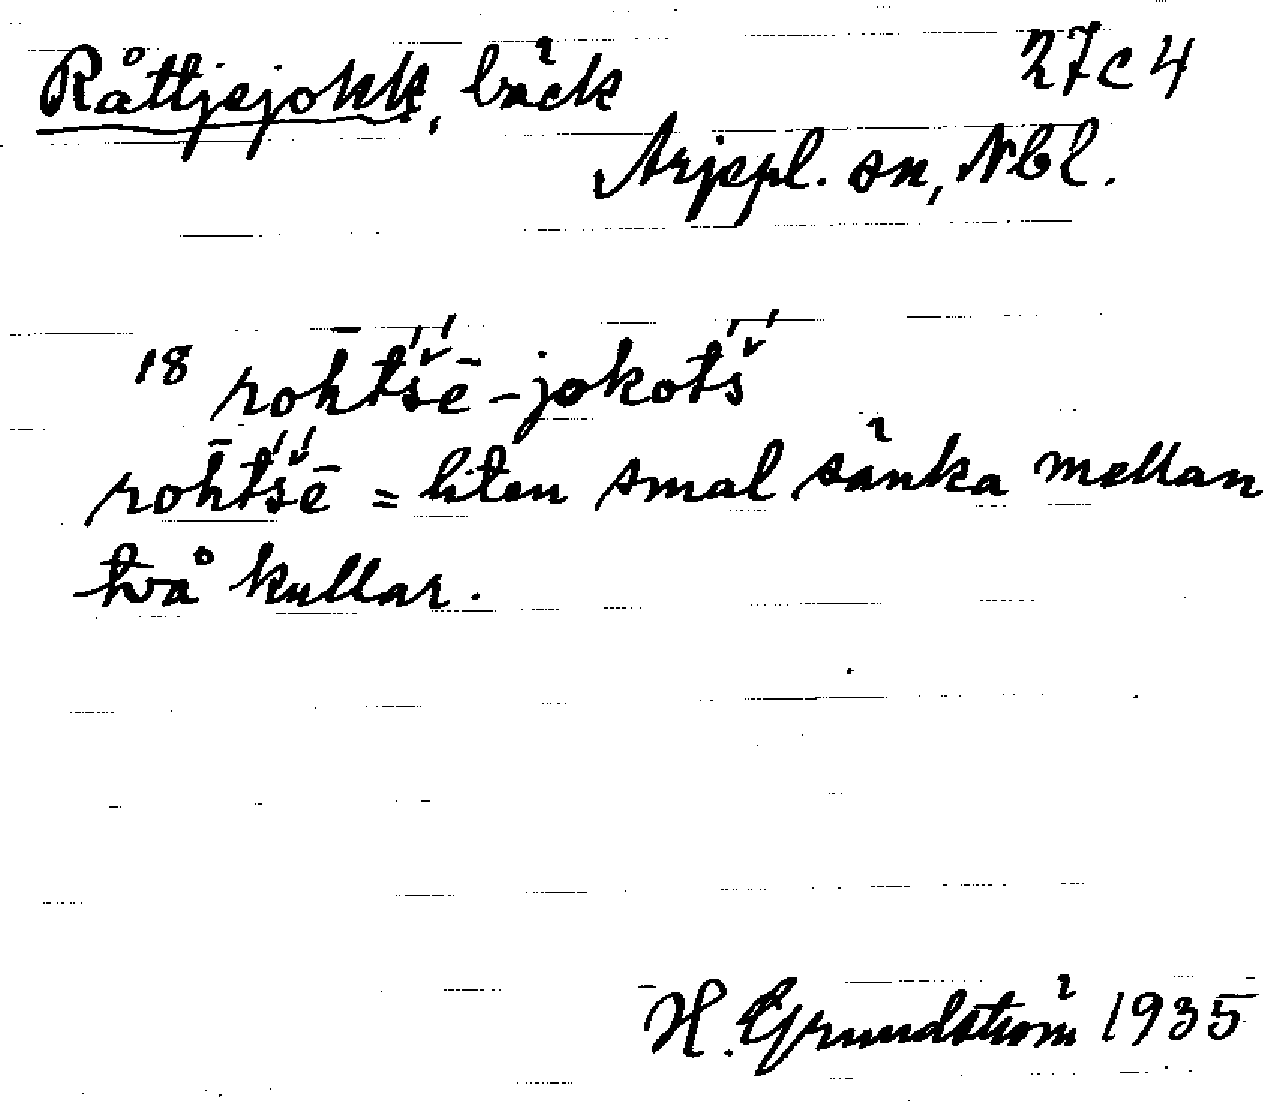 Råttjejokk, bäck 27C4
Arjepl. sn, Nbl.
18 rōh̄t́š́ē-jokot́š́
rōh̄t́š́ē = liten smal sänka mellan
två kullar.
H. Grundström 1935